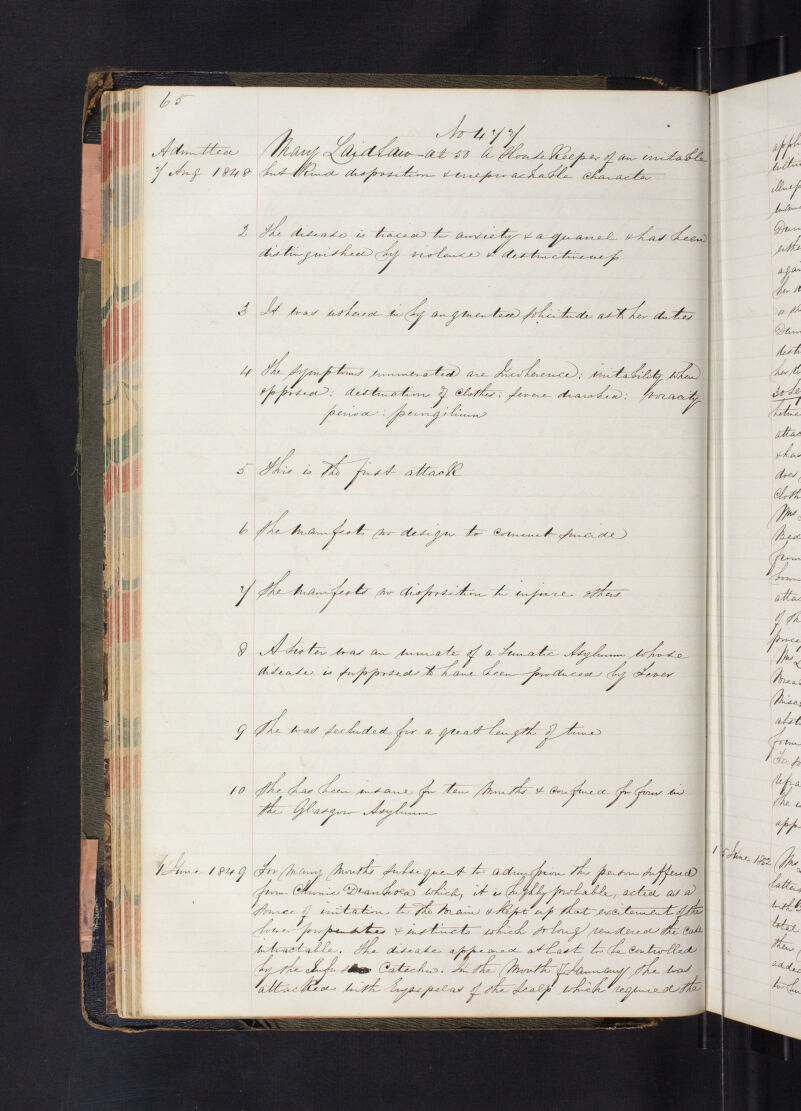 65
No 477
Admitted Mary Laidlaw at 50 A House Keeper of an irritable
7 Aug 1848 but kind disposition & irreproachable character
2 The disease is traced to anxiety & a quarrel & has been
distinguished by violence & destructiveness
3 It was ushered in by augmented solicitude as to her duties
4 The symptoms enumerated are Incoherence: irritability when
opposed: destruction of clothes: severe diarrhea: voracity
period: pervigilium
5 This is the first attack
6 She manifests no design to commit suicide
7 She manifests no disposition to injure others
8 A Sister was an inmate of a Lunatic Asylum whose
disease is supposed to have been produced by Fever
9 She was secluded for a great length of time
10 She has been insane for ten Months & confined for four in
the Glasgow Asylum
1 June 1849 For many Months subsequent to admission this person suffered
from Chronic Diarrhoea which, it is highly probable, acted as a
source of irritation to the brain & kept up that excitement of the
lower propensities & instincts which so long rendered the case
intractable. The disease appeared at last to be controlled
by the Infus Catechu. In the Month of January she was
attacked with Erysipelas of the Scalp which required the
15 June 1850